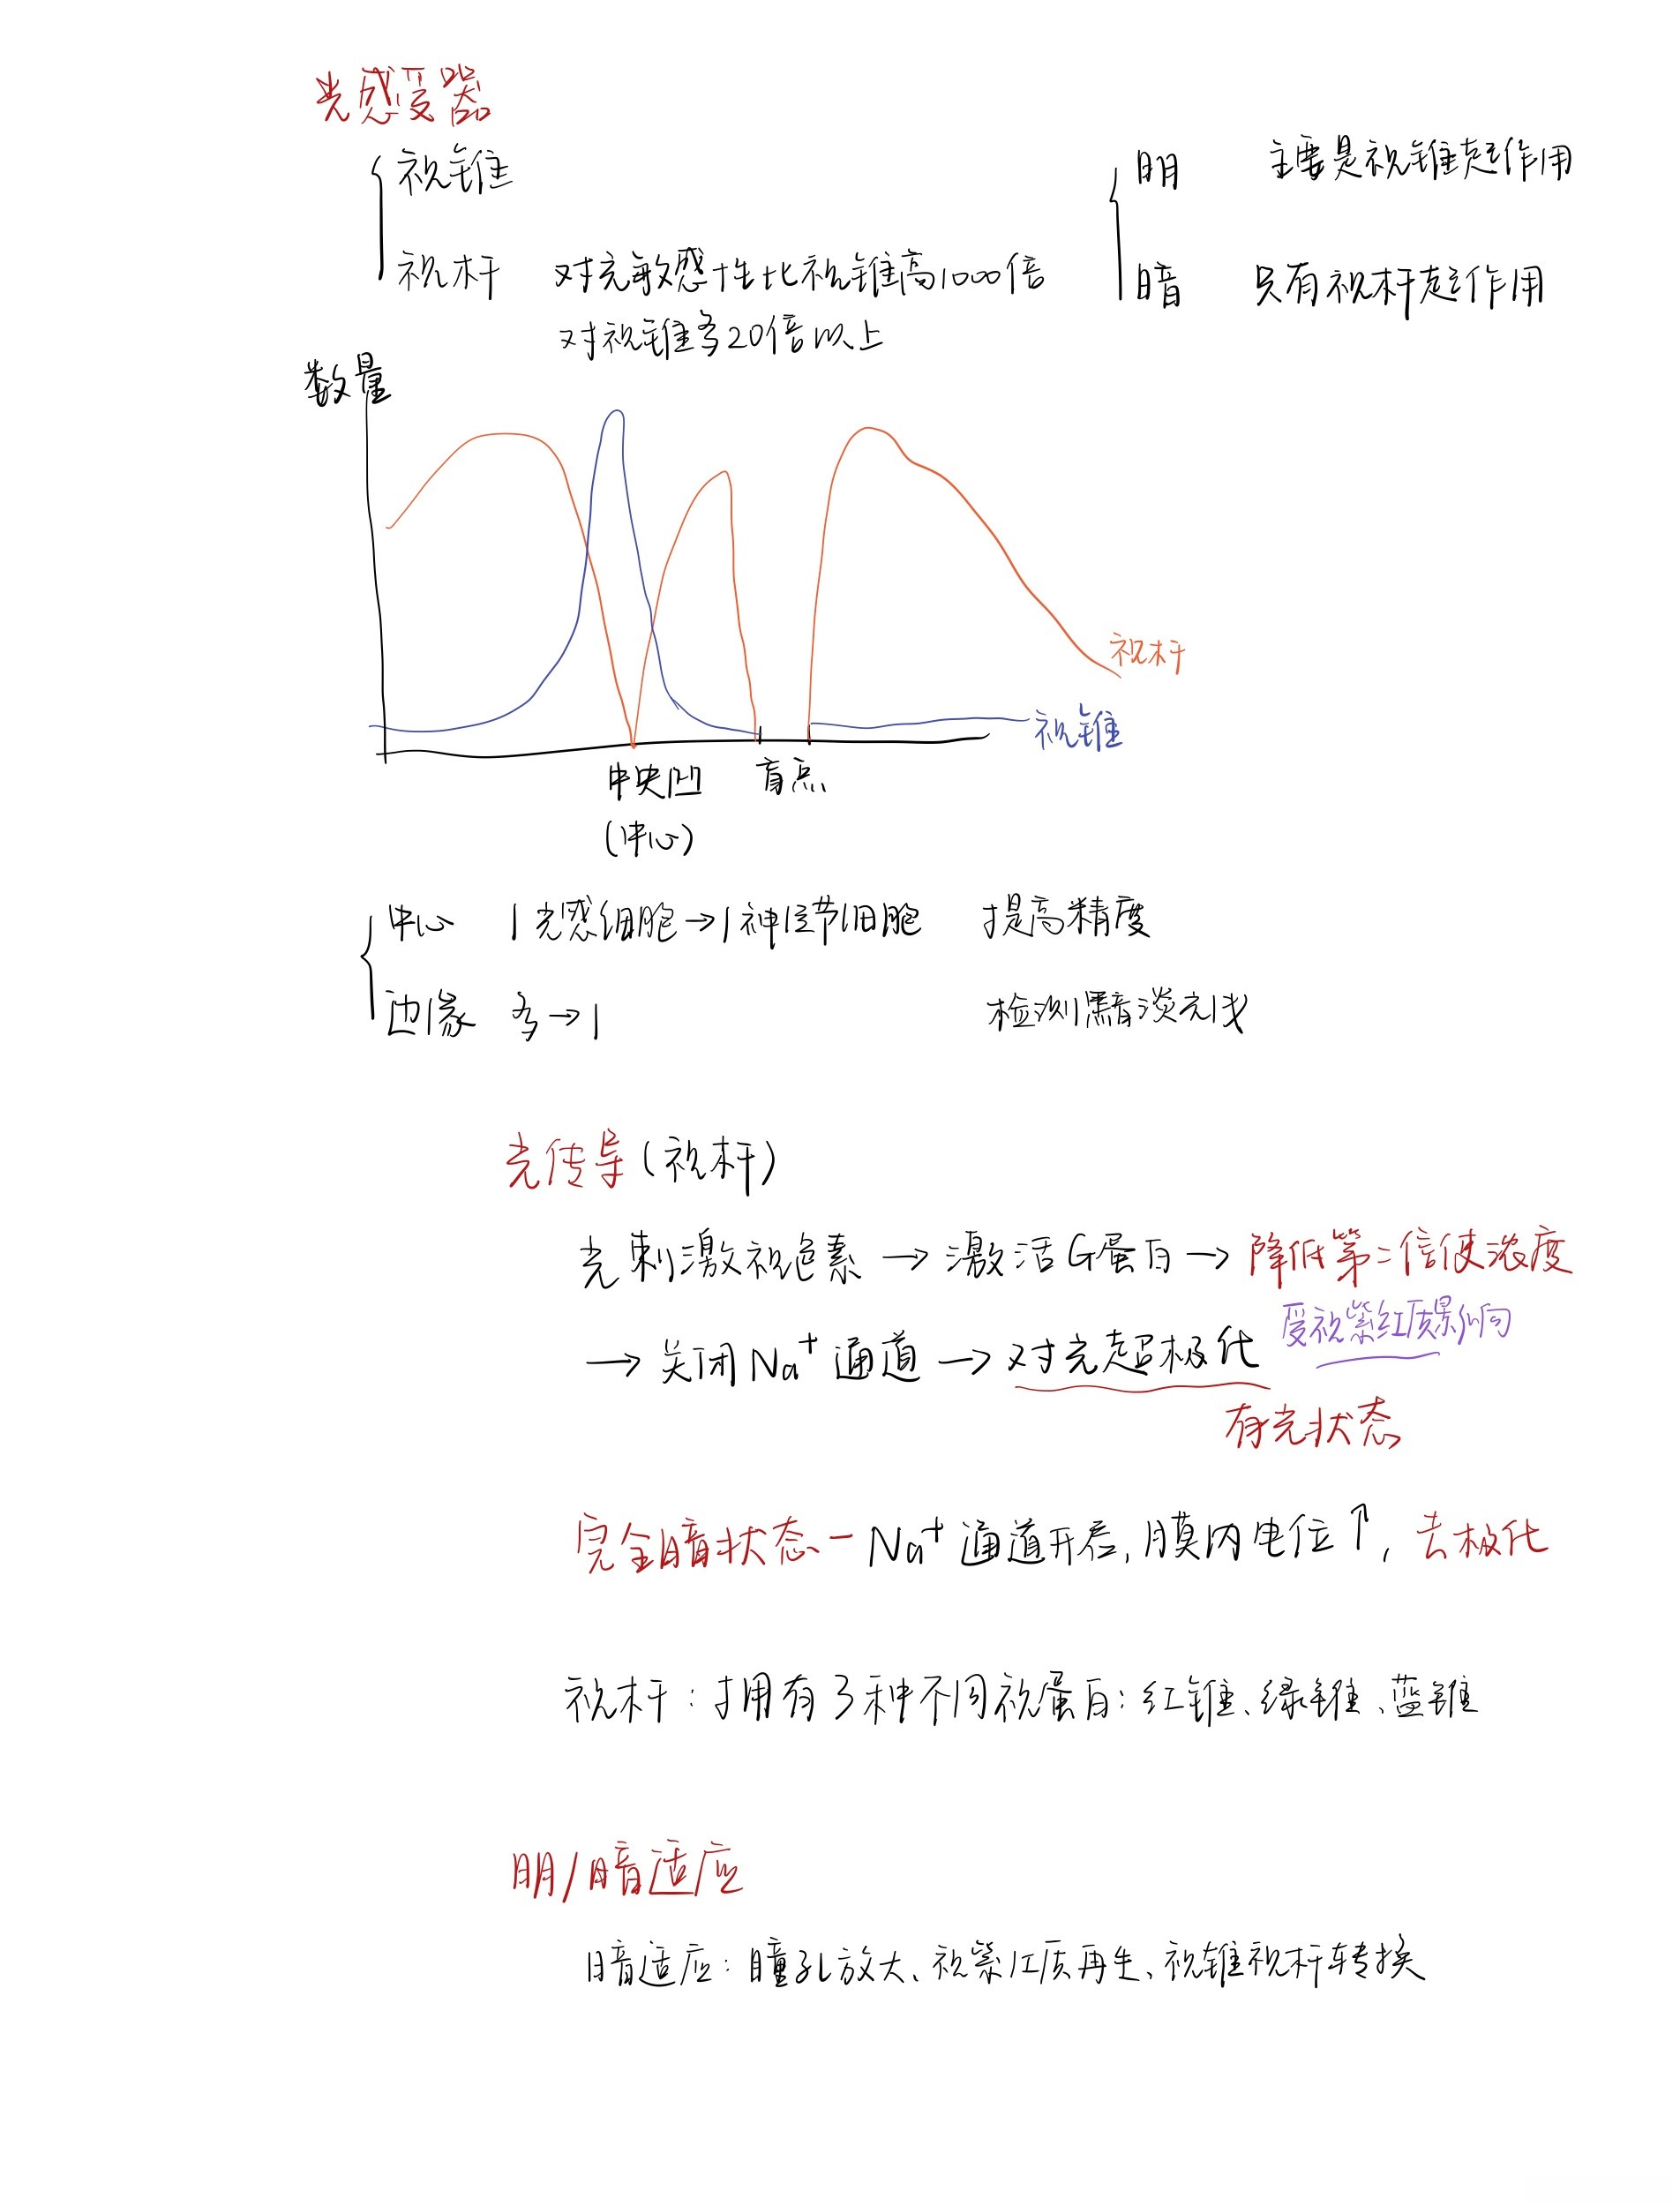 光感受器
视锥
视杆 对光敏感性比视锥高1000倍
对视锥多20倍以上
明 主要是视锥起作用
暗 只有视杆起作用
数量
视杆
视锥
中央凹 盲点
(中心)
中心 1光感细胞→1神经节细胞 提高精度
边缘 多→1 检测黯淡光线
光传导(视杆)
光刺激视色素→激活G蛋白→降低第二信使浓度
→关闭Na⁺通道→对光超极化 受视紫红质影响
有光状态
完全暗状态-Na⁺通道开启,膜内电位↑,去极化
视杆:拥有3种不同视蛋白:红锥、绿锥、蓝锥
明/暗适应
暗适应:瞳孔放大、视紫红质再生、视锥视杆转换